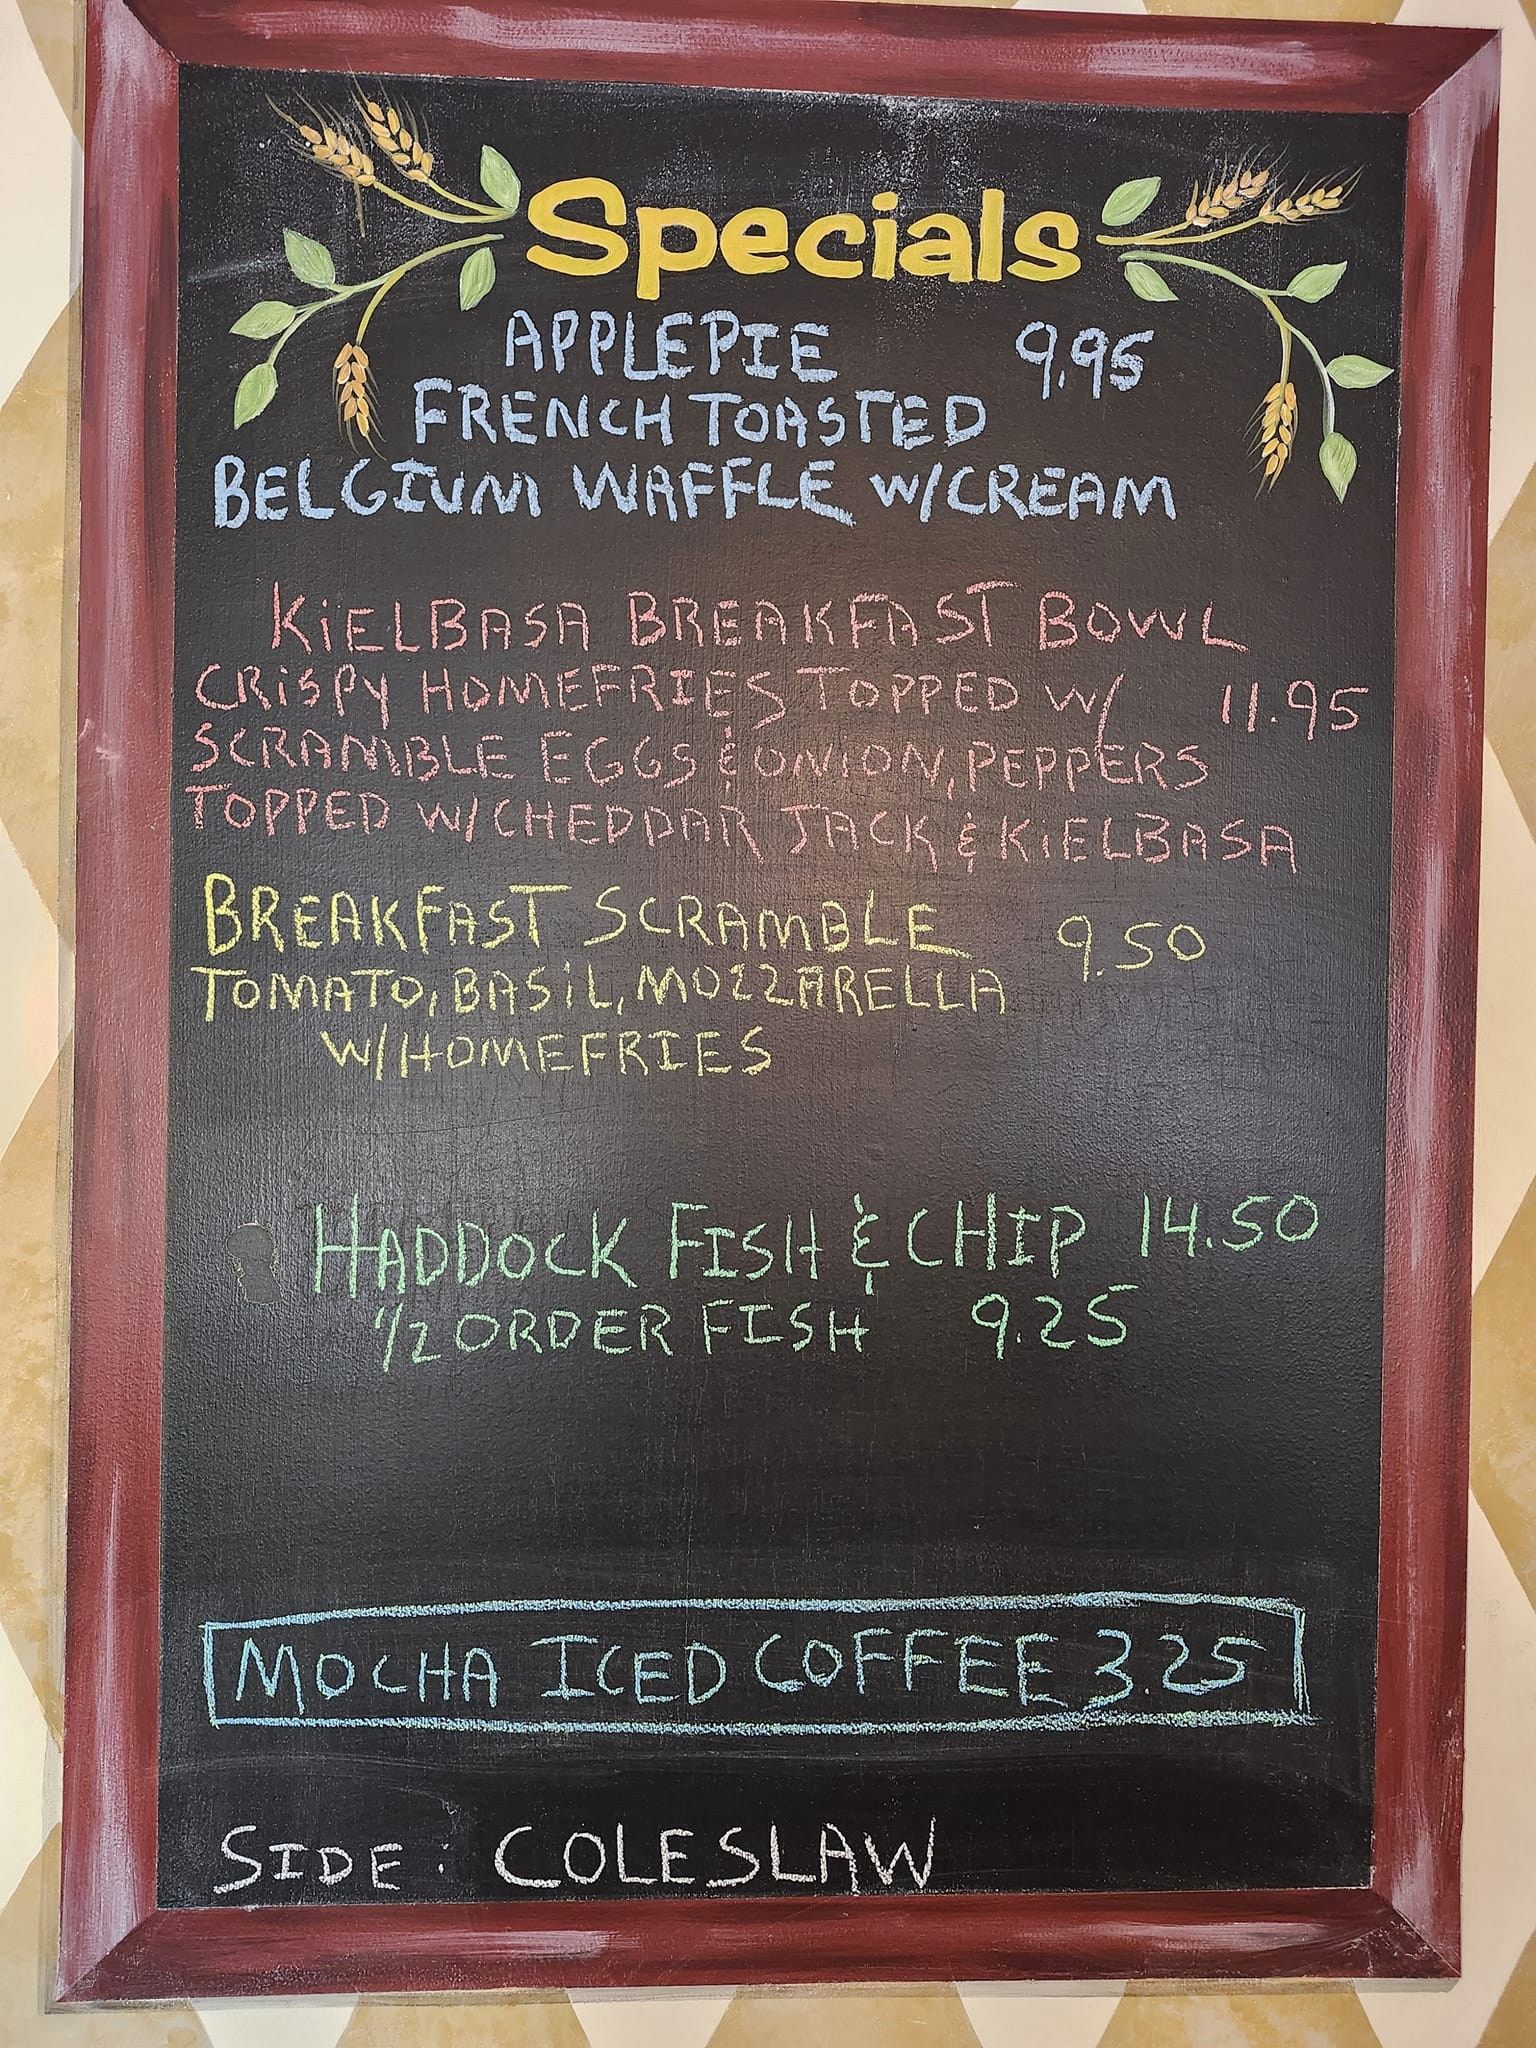 Specials
APPLEPIE 9.95
FRENCH TOASTED
BELGIUM WAFFLE W/CREAM
KiELBASA BREAKFAST BOWL
CRiSPY HOMEFRIES TOPPED W/ 11.95
SCRAMBLE EGGS & ONION, PEPPERS
TOPPED W/CHEDDAR JACK & KiELBASA
BREAKFAST SCRAMBLE 9.50
TOMATO, BASiL, MOZZARELLA
W/HOMEFRIES
HADDOCK FISH & CHIP 14.50
1/2 ORDER FISH 9.25
MOCHA ICED COFFEE 3.25
SIDE: COLESLAW